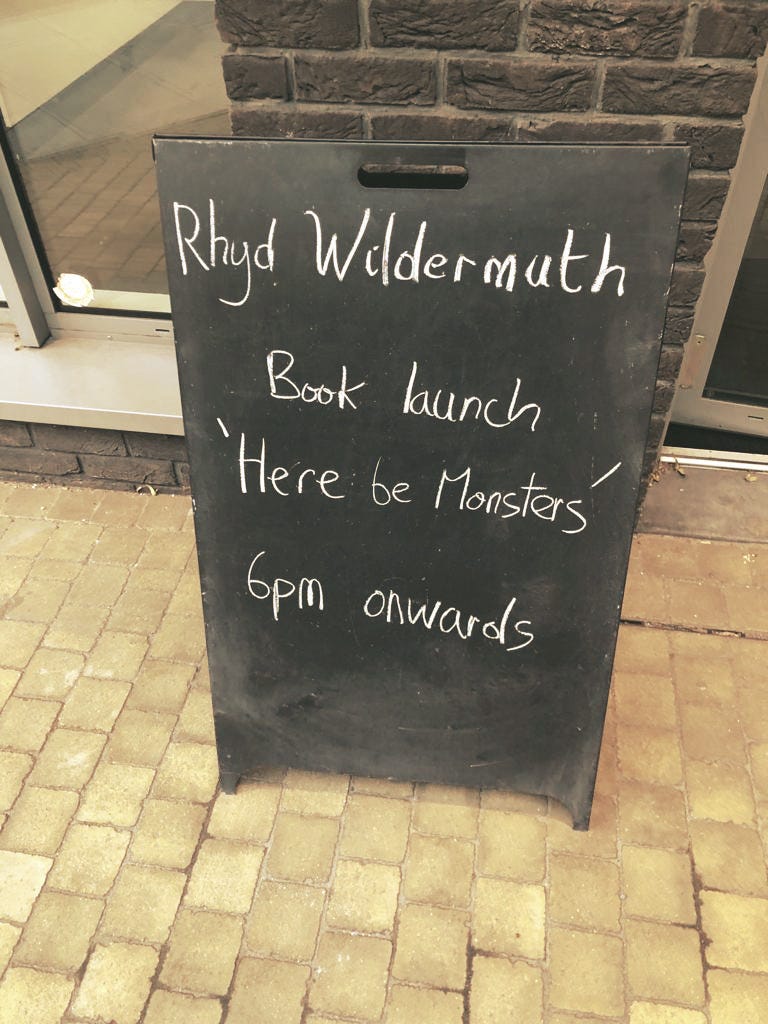 Rhyd Wildermuth
Book launch
'Here be Monsters'
6pm onwards